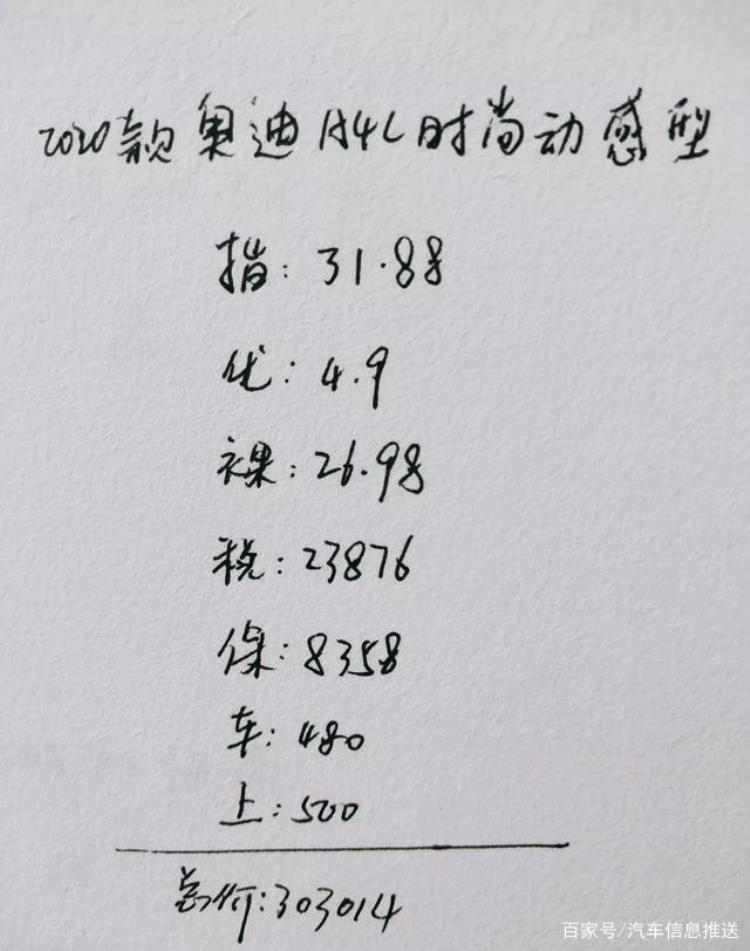 2020款奥迪A4L时尚动感型
指: 31.88
优: 4.9
裸: 26.98
税: 23876
保: 8358
车: 480
上: 500
总价: 303014
百家号/汽车信息推送